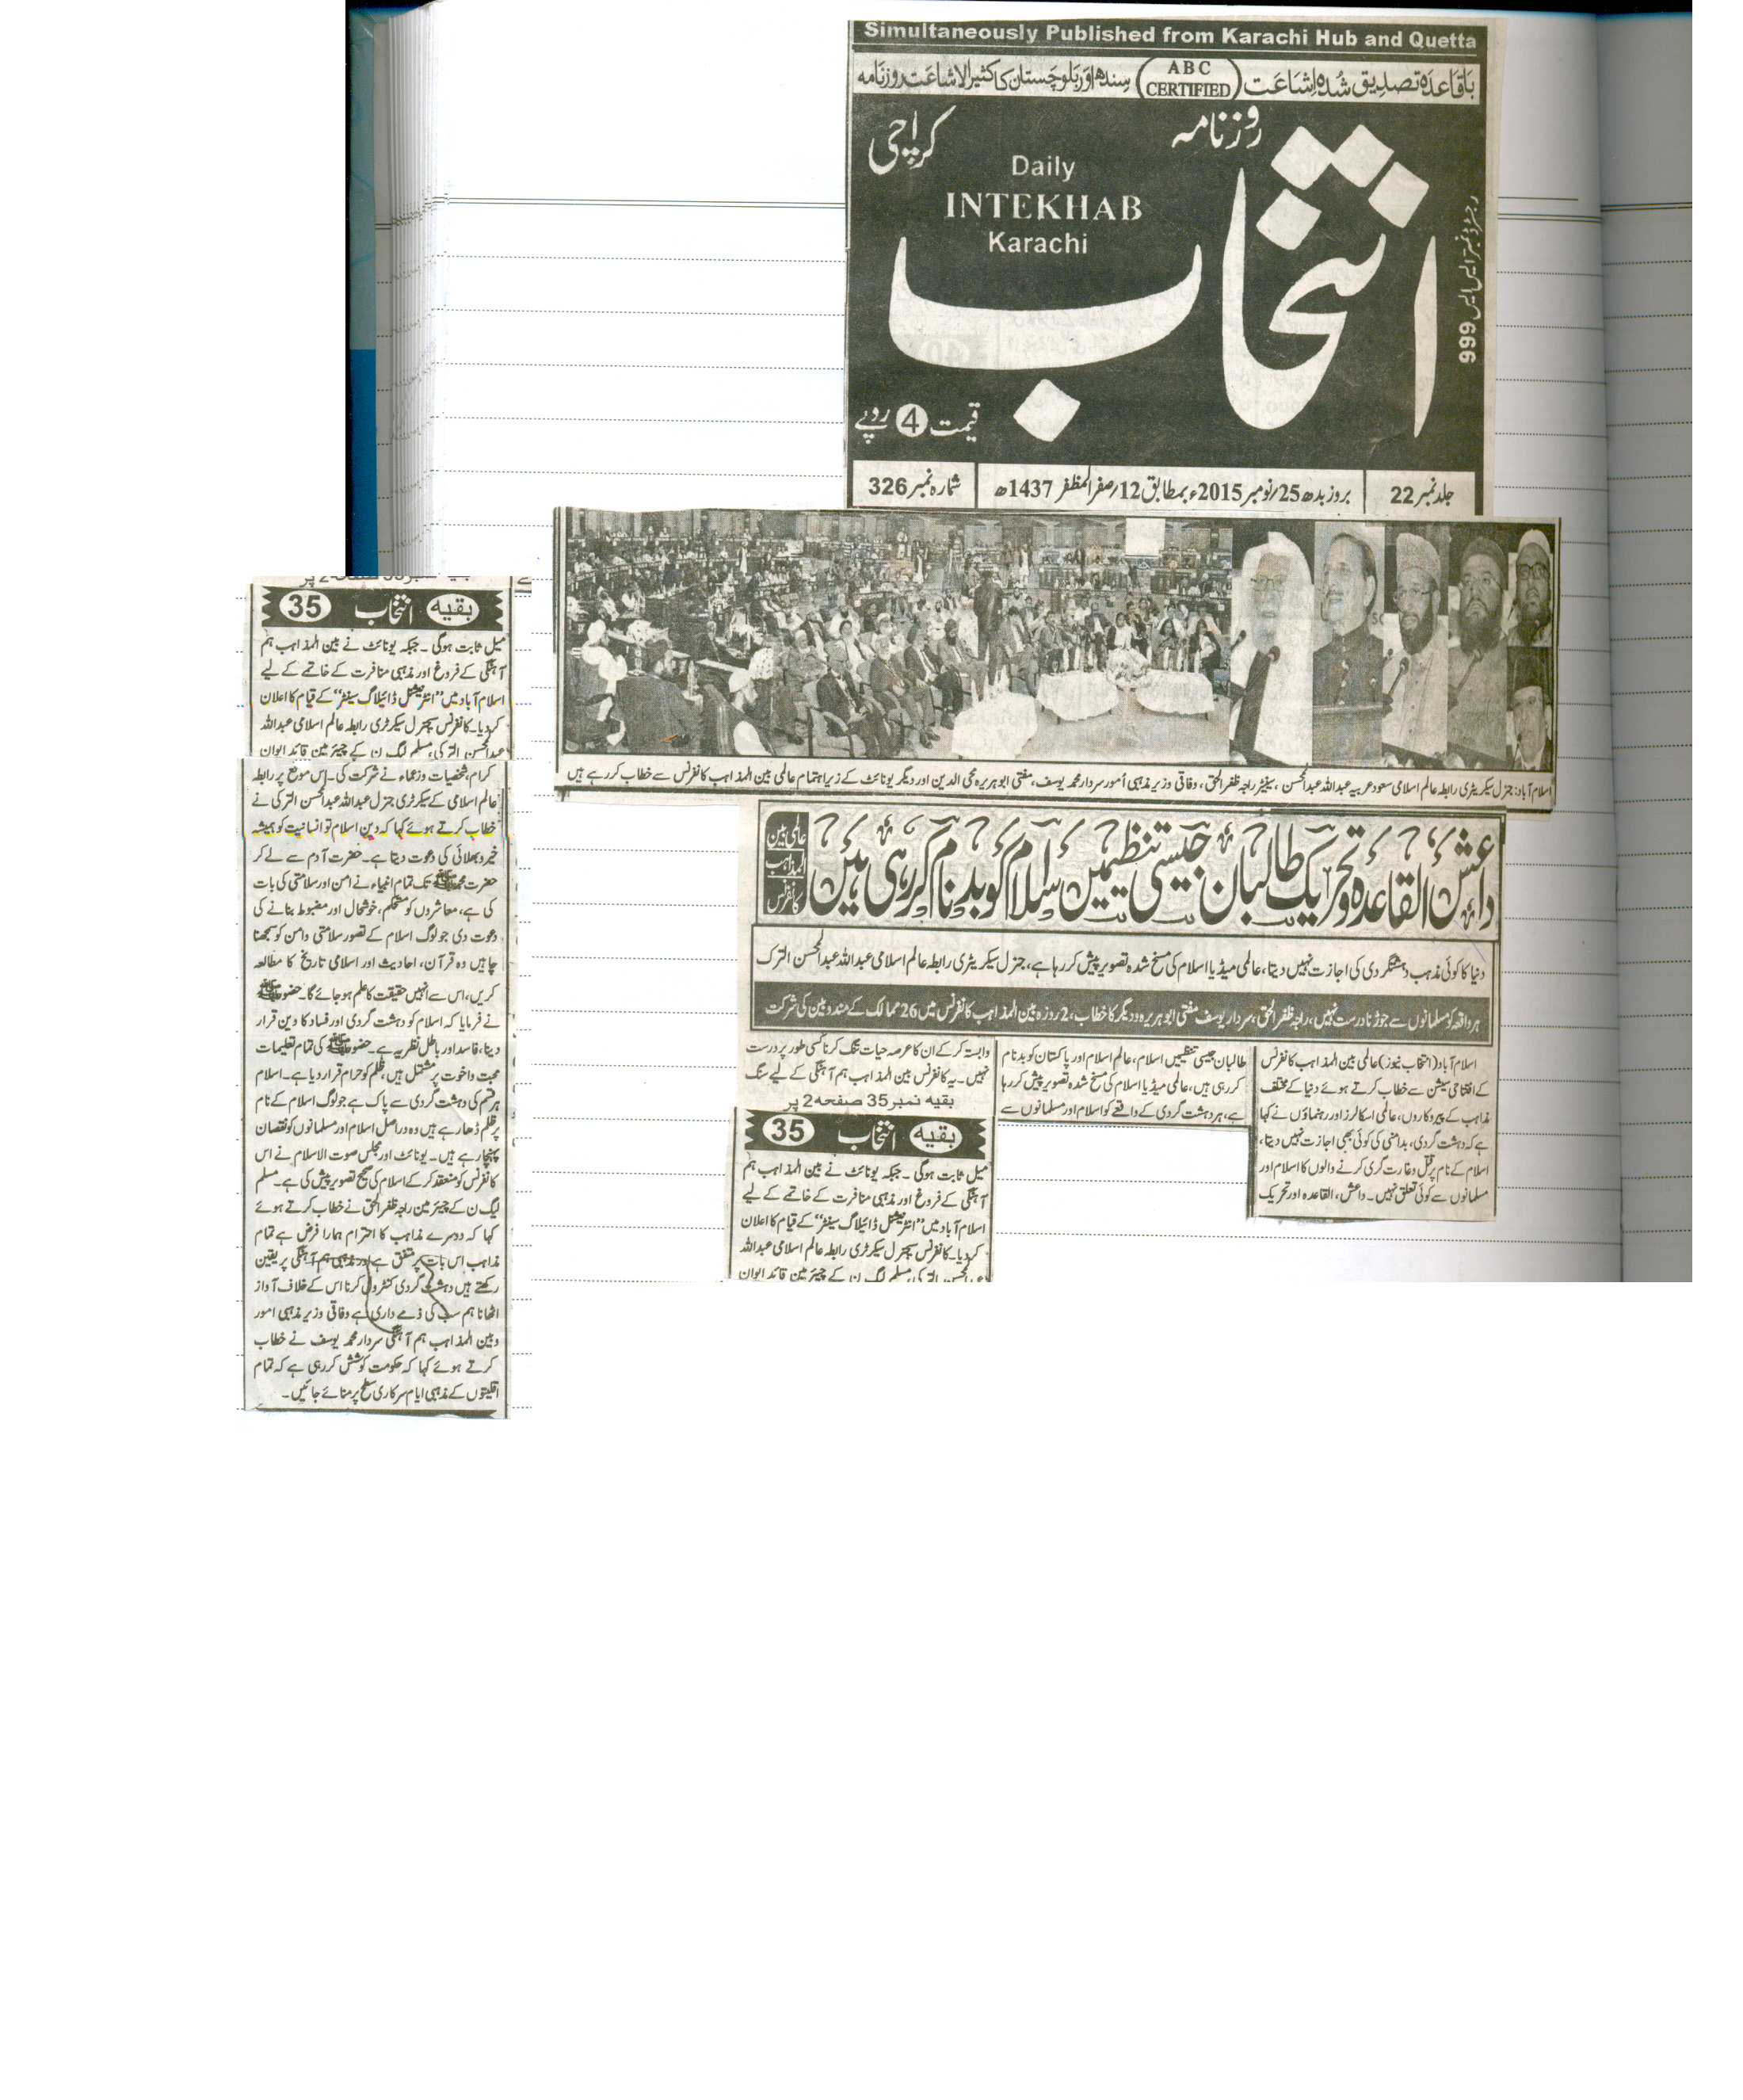 Simultaneously Published from Karachi Hub and Quetta
باقاعدہ تصدیق شدہ اشاعت ABC CERTIFIED سندھ اور بلوچستان کا کثیر الاشاعت روزنامہ
روزنامہ
کراچی
Daily
INTEKHAB
Karachi
انتخاب
رجسٹرڈ نمبر ایس ایس 999
قیمت 4 روپے
جلد نمبر 22
بروز بدھ 25/نومبر 2015ء بمطابق 12/صفر المظفر 1437ھ
شمارہ نمبر 326
اسلام آباد: جنرل سیکریٹری رابطہ عالم اسلامی سعودعربیہ عبداللہ عبدالمحسن، سینیٹر راجہ ظفر الحق، وفاقی وزیر مذہبی اُمور سردار محمد یوسف، مفتی ابوہریرہ محی الدین اور دیگر یونائٹ کے زیر اہتمام عالمی بین المذاہب کانفرنس سے خطاب کر رہے ہیں
عالمی بین
المذاہب
کانفرنس
داعش، القاعدہ و تحریک طالبان جیسی تنظیمیں اسلام کو بدنام کر رہی ہیں
دنیا کا کوئی مذہب دہشتگردی کی اجازت نہیں دیتا، عالمی میڈیا اسلام کی مسخ شدہ تصویر پیش کر رہا ہے، جنرل سیکریٹری رابطہ عالم اسلامی عبداللہ عبدالمحسن الترک
ہر واقعہ کو مسلمانوں سے جوڑنا درست نہیں، راجہ ظفر الحق، سردار یوسف مفتی ابوہریرہ و دیگر کا خطاب، 2 روزہ بین المذاہب کانفرنس میں 26 ممالک کے مندوبین کی شرکت
اسلام آباد (انتخاب نیوز) عالمی بین المذاہب کانفرنس
کے افتتاحی سیشن سے خطاب کرتے ہوئے دنیا کے مختلف
مذاہب کے پیروکاروں، عالمی اسکالرز اور رہنماؤں نے کہا
ہے کہ دہشت گردی، بدامنی کی کوئی بھی اجازت نہیں دیتا،
اسلام کے نام پر قتل و غارت گری کرنے والوں کا اسلام اور
مسلمانوں سے کوئی تعلق نہیں۔ داعش، القاعدہ اور تحریک
طالبان جیسی تنظیمیں اسلام، عالم اسلام اور پاکستان کو بدنام
کر رہی ہیں، عالمی میڈیا اسلام کی مسخ شدہ تصویر پیش کر رہا
ہے، ہر دہشت گردی کے واقعے کو اسلام اور مسلمانوں سے
وابستہ کر کے ان کا عرصہ حیات تنگ کرنا کسی طور پر درست
نہیں۔ یہ کانفرنس بین المذاہب ہم آہنگی کے لیے سنگ
بقیہ نمبر35 صفحہ2 پر
بقیہ انتخاب 35
میل ثابت ہوگی۔ جبکہ یونائٹ نے بین المذاہب ہم
آہنگی کے فروغ اور مذہبی منافرت کے خاتمے کے لیے
اسلام آباد میں ’’انٹرنیشنل ڈائیلاگ سینٹر‘‘ کے قیام کا اعلان
کردیا۔ کانفرنس سیجنرل سیکرٹری رابطہ عالم اسلامی عبداللہ
عبدالمحسن الترکی، مسلم لیگ ن کے چیئرمین قائد ایوان
بقیہ نمبر35 صفحہ2 پر
بقیہ انتخاب 35
میل ثابت ہوگی۔ جبکہ یونائٹ نے بین المذاہب ہم
آہنگی کے فروغ اور مذہبی منافرت کے خاتمے کے لیے
اسلام آباد میں ’’انٹرنیشنل ڈائیلاگ سینٹر‘‘ کے قیام کا اعلان
کردیا۔ کانفرنس سیجنرل سیکرٹری رابطہ عالم اسلامی عبداللہ
عبدالمحسن الترکی، مسلم لیگ ن کے چیئرمین قائد ایوان
کرام، شخصیات و زعماء نے شرکت کی۔ اس موقع پر رابطہ
عالم اسلامی کے سیکرٹری جنرل عبداللہ عبدالمحسن الترکی نے
خطاب کرتے ہوئے کہا کہ دین اسلام تو انسانیت کو ہمیشہ
خیر و بھلائی کی دعوت دیتا ہے۔ حضرت آدم سے لے کر
حضرت محمد ﷺ تک تمام انبیاء نے امن اور سلامتی کی بات
کی ہے، معاشروں کو مستحکم، خوشحال اور مضبوط بنانے کی
دعوت دی جو لوگ اسلام کے تصور سلامتی و امن کو سمجھنا
چاہیں وہ قرآن، احادیث اور اسلامی تاریخ کا مطالعہ
کریں، اس سے انہیں حقیقت کا علم ہو جائے گا۔ حضور ﷺ
نے فرمایا کہ اسلام کو دہشت گردی اور فساد کا دین قرار
دینا، فاسد اور باطل نظریہ ہے۔ حضور ﷺ کی تمام تعلیمات
محبت و اخوت پر مشتمل ہیں، ظلم کو حرام قرار دیا ہے۔ اسلام
ہر قسم کی دہشت گردی سے پاک ہے جو لوگ اسلام کے نام
پر ظلم ڈھا رہے ہیں وہ دراصل اسلام اور مسلمانوں کو نقصان
پہنچا رہے ہیں۔ یونائٹ اور مجلس صوت الاسلام نے اس
کانفرنس کو منعقد کر کے اسلام کی صحیح تصویر پیش کی ہے۔ مسلم
لیگ ن کے چیئرمین راجہ ظفر الحق نے خطاب کرتے ہوئے
کہا کہ دوسرے مذاہب کا احترام ہمارا فرض ہے تمام
مذاہب اس بات پر متفق ہے اور مذہبی ہم آہنگی پر یقین
رکھتے ہیں دہشت گردی کنٹرول کرنا اس کے خلاف آواز
اٹھانا ہم سب کی ذمے داری ہے وفاقی وزیر مذہبی امور
و بین المذاہب ہم آہنگی سردار محمد یوسف نے خطاب
کرتے ہوئے کہا کہ حکومت کوشش کر رہی ہے کہ تمام
اقلیتوں کے مذہبی ایام سرکاری سطح پر منائے جائیں۔